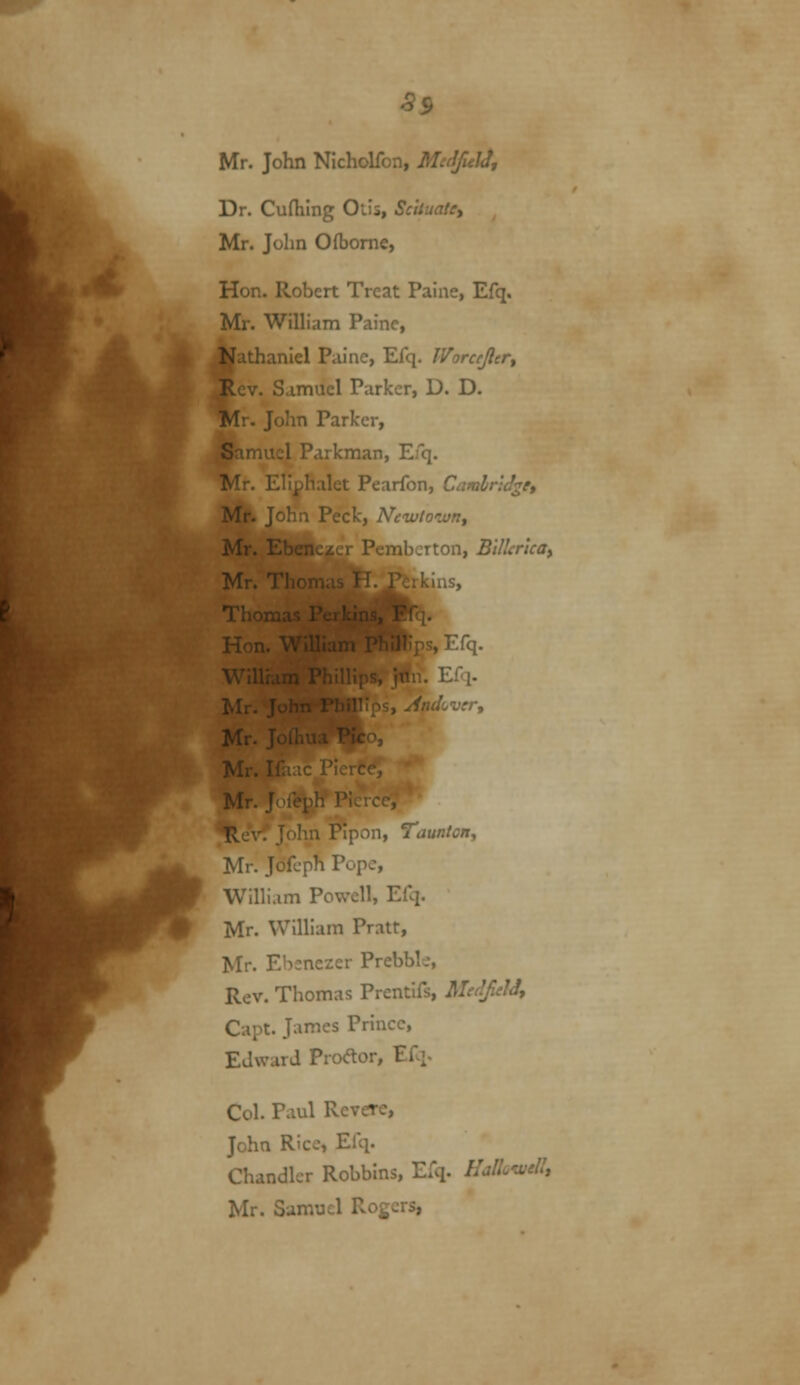 39
Mr. John Nicholſon, Medfield,
Dr. Cuſhing Otis, Scituate,
Mr. John Oſborne,
Hon. Robert Treat Paine, Eſq.
Mr. William Paine,
Nathaniel Paine, Eſq. Worceſter,
Rev. Samuel Parker, D. D.
Mr. John Parker,
Samuel Parkman, Eſq.
Mr. Eliphalet Pearſon, Cambridge,
Mr. John Peck, Newtown,
Mr. Ebenezer Pemberton, Billerica,
Mr. Thomas H. Perkins,
Thomas Perkins, Eſq.
Hon. William Phillips, Eſq.
William Phillips, jun. Eſq.
Mr. John Phillips, Andover,
Mr. Joſhua Pico,
Mr. Iſaac Pierce,
Mr. Joſeph Pierce,
Rev. John Pipon, Taunton,
Mr. Joſeph Pope,
William Powell, Eſq.
Mr. William Pratt,
Mr. Ebenezer Prebble,
Rev. Thomas Prentiſs, Medfield,
Capt. James Prince,
Edward Proctor, Eſq.
Col. Paul Revere,
John Rice, Eſq.
Chandler Robbins, Eſq. Hallowell,
Mr. Samuel Rogers,